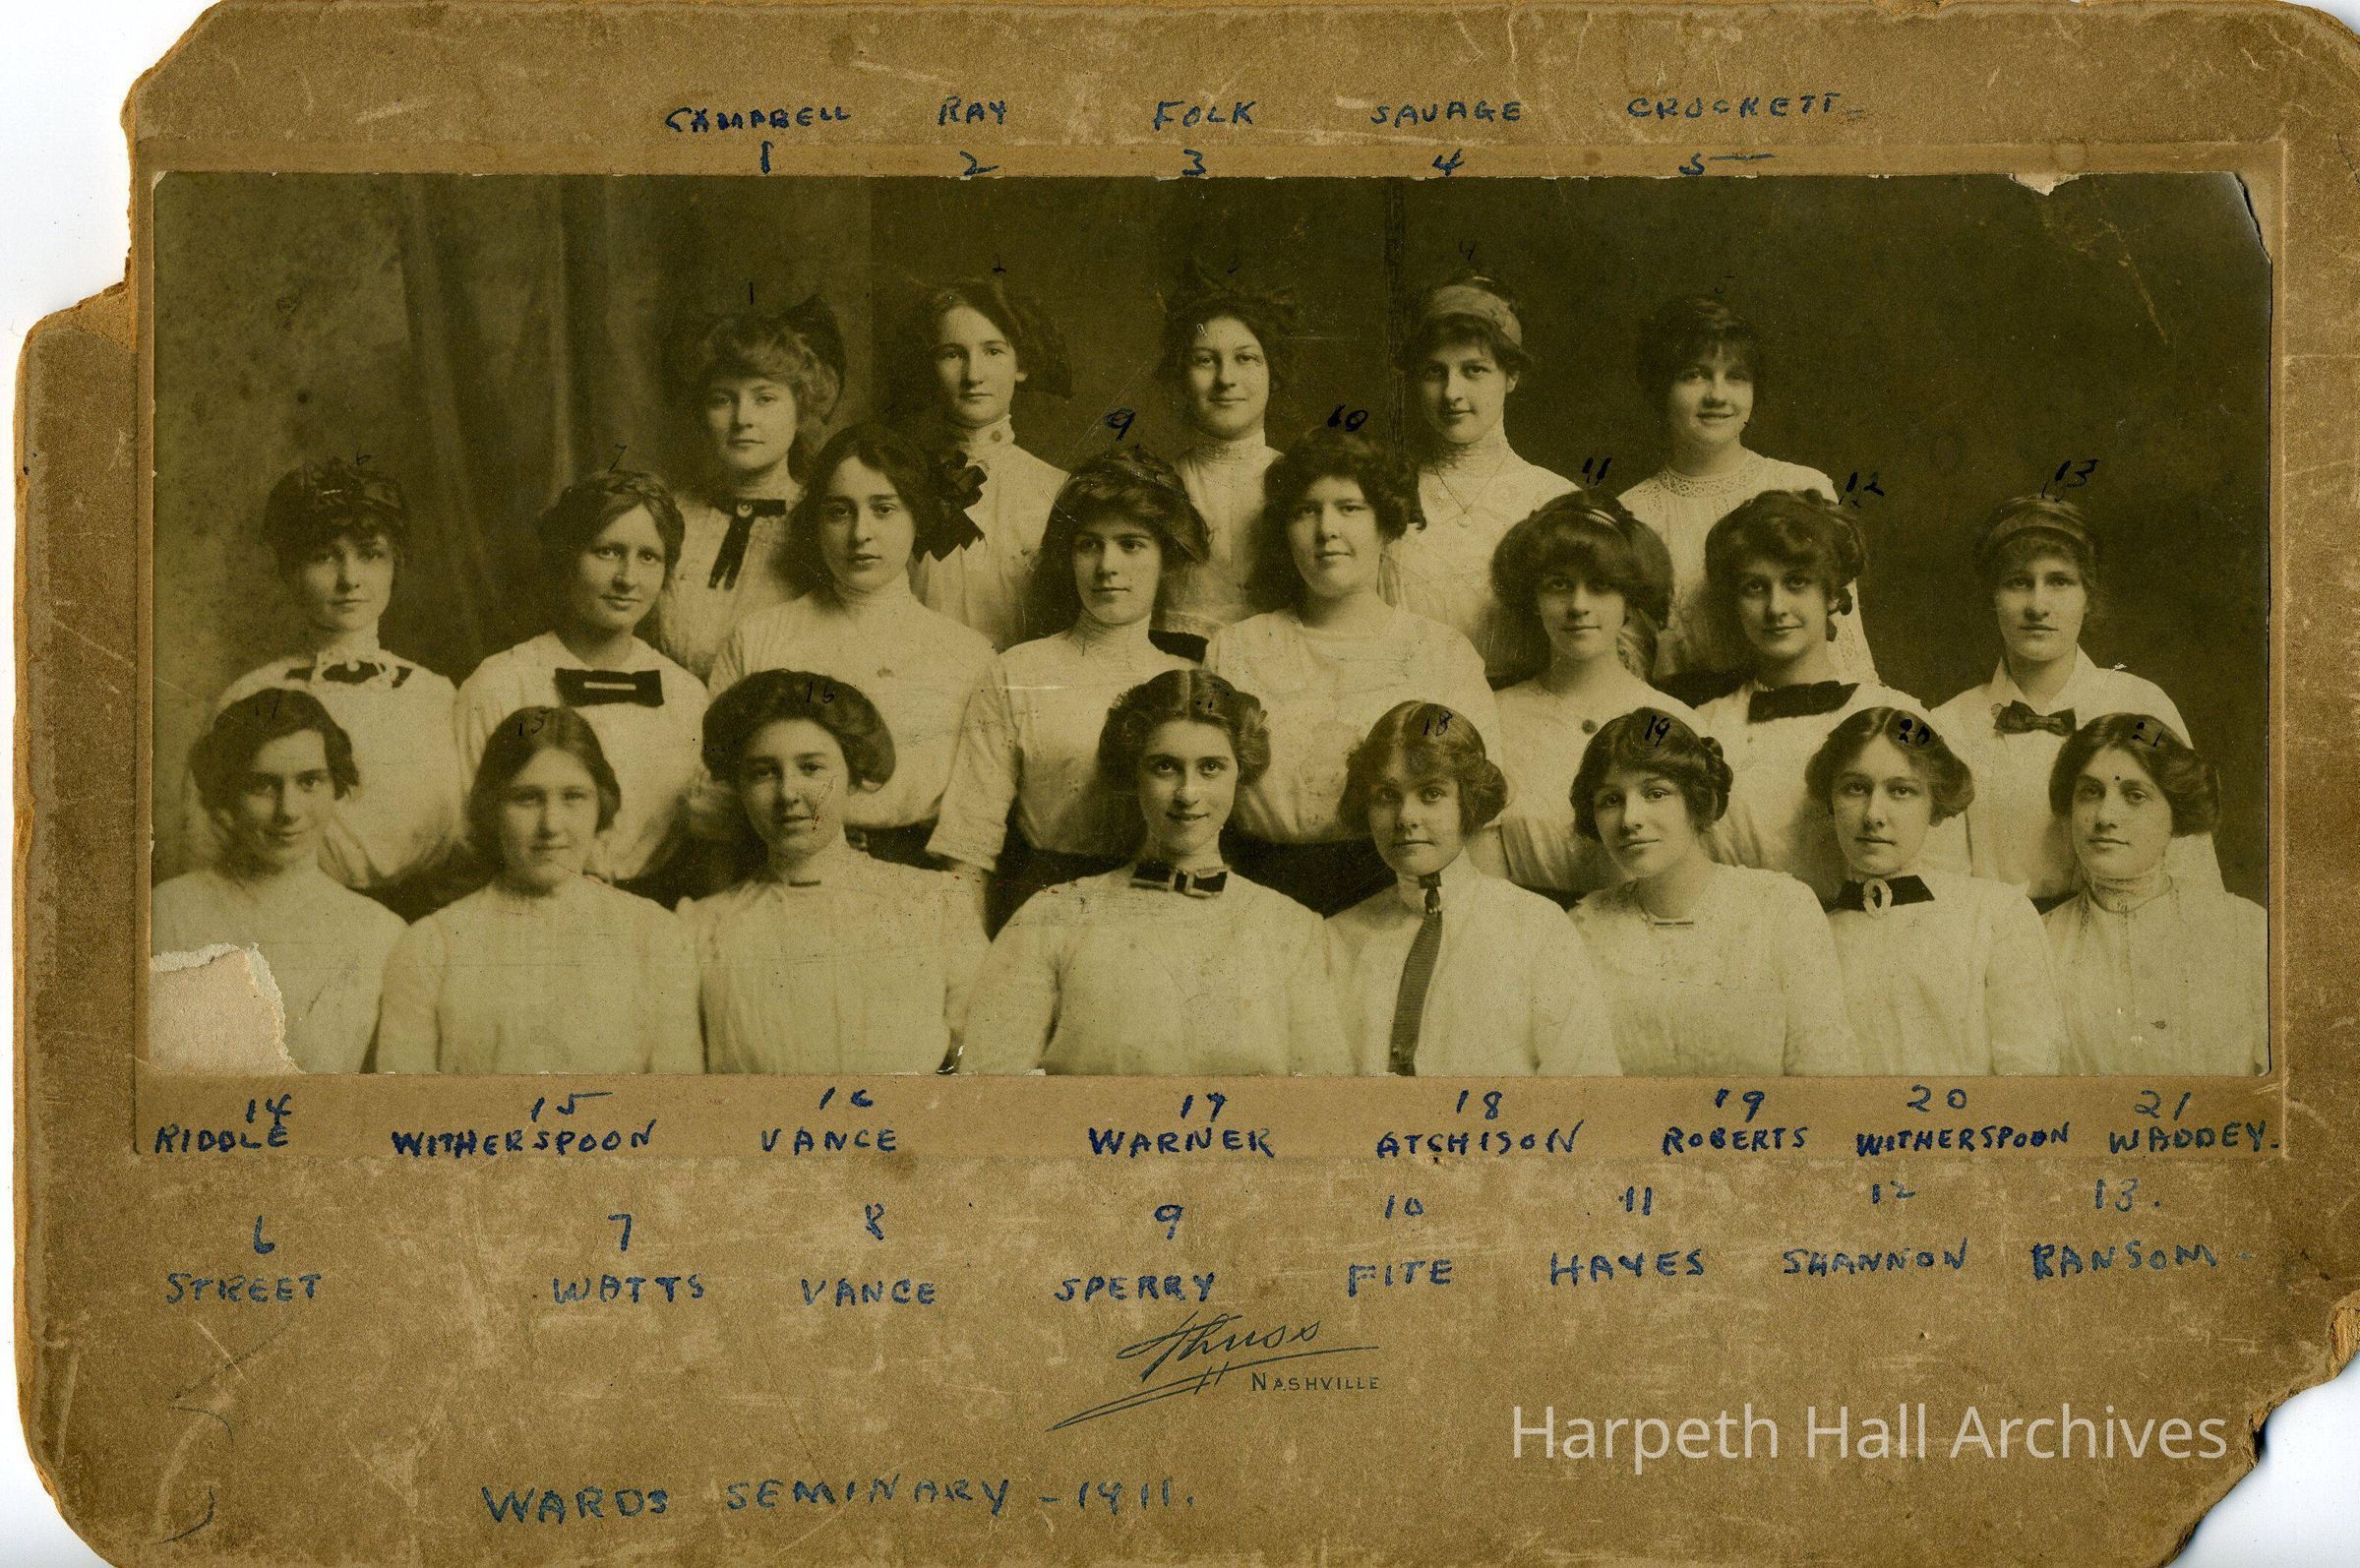 CAMPBELL RAY FOLK SAVAGE CROCKETT
1 2 3 4 5
4
1
9 10
6 7 11 12 13
16
15 18 19 20 21
14 15 16 17 18 19 20 21
RIDDLE WITHERSPOON VANCE WARNER ATCHISON ROBERTS WITHERSPOON WADDEY.
6 7 8 9 10 11 12 13.
STREET WATTS VANCE SPERRY FITE HAYES SHANNON RANSOM
Thuss
NASHVILLE
Harpeth Hall Archives
WARDS SEMINARY - 1911.